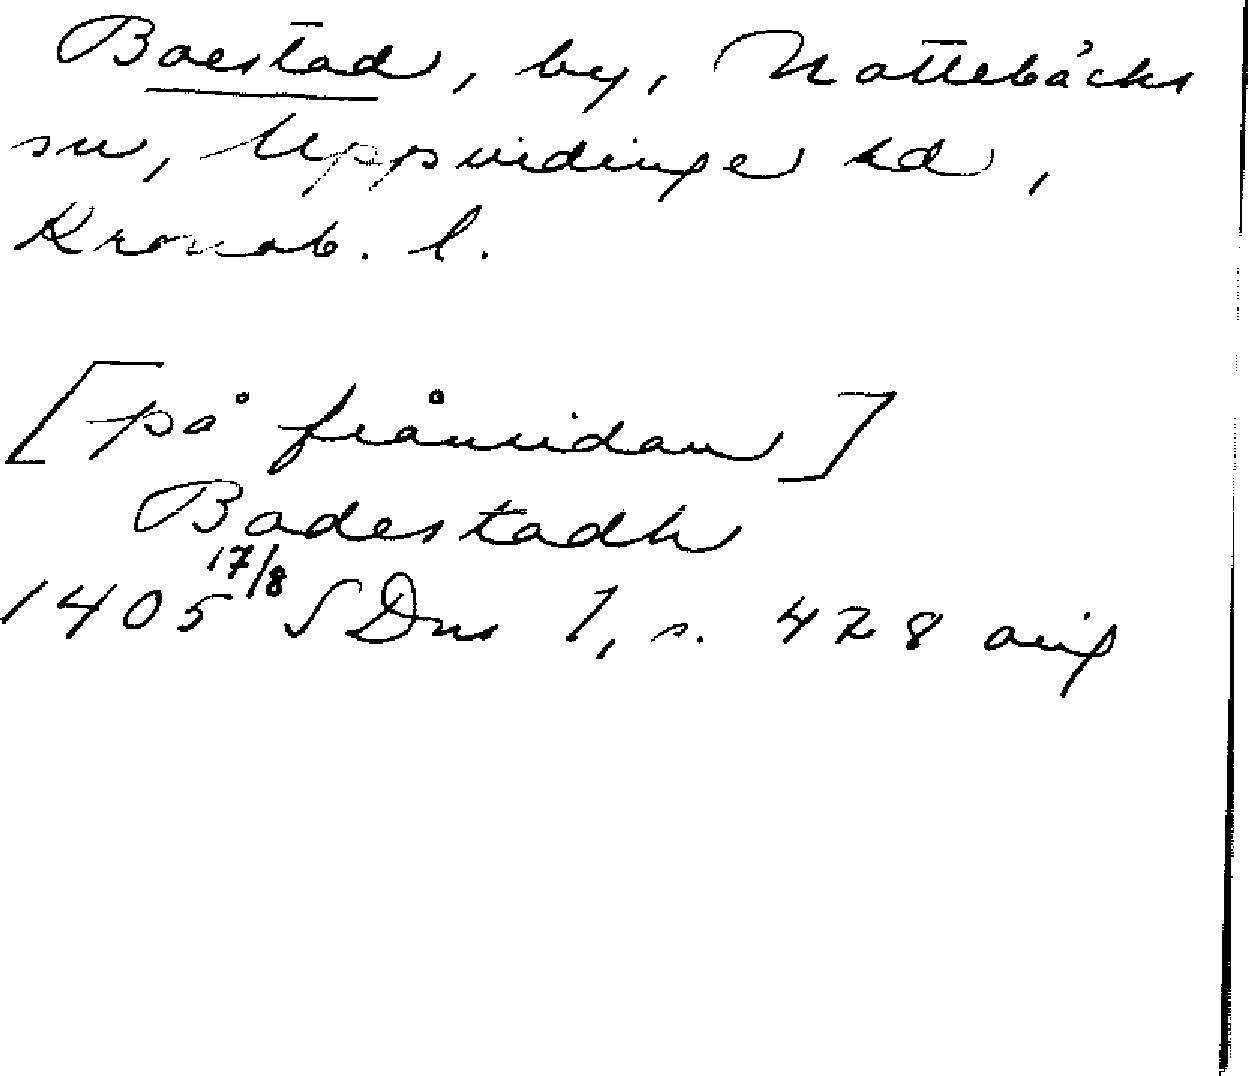 Boestad, by, Nottebäcks
sn, Uppvidinge hd,
Kronob. l.
[på frånsidan]
Badestadh
1405 17/8 SDns 1, s. 428 orig